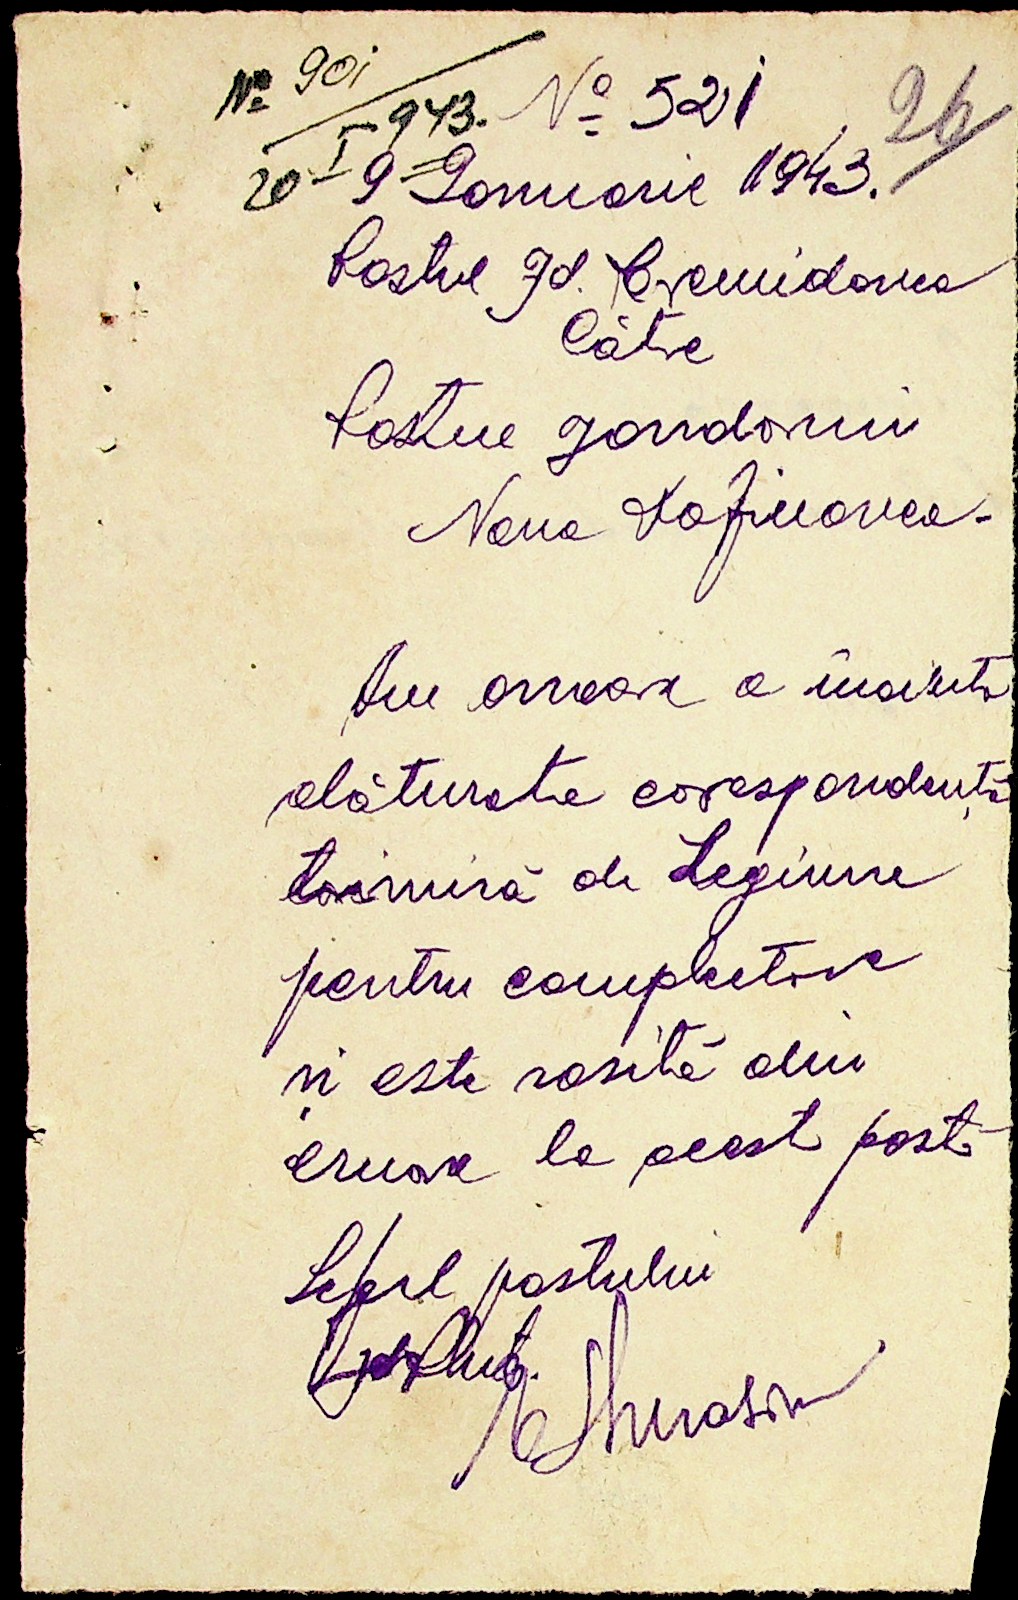 No 901
20 I 943.
No 521
26
9 Ianuarie 1943.
Postul Jd. Cremidovca
Către
Postul Jandarmi
Nova Dofinovca -
Am onoare a înainta
alăturata corespondență
trimisă de Legiune
pentru completare
și este sosită din
eroare la acest post
Șeful postului